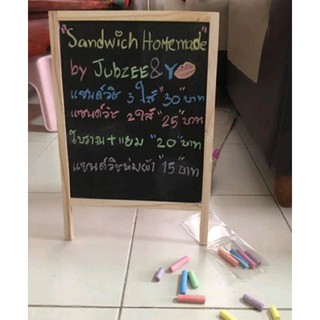 "Sandwich Homemade"
by JubZEE & YO
แซนด์วิช 3 ไส้ "30" บาท
แซนด์วิช 2 ไส้ "25" บาท
โบราณ+แยม "20" บาท
แซนด์วิชห่มผ้า "15" บาท